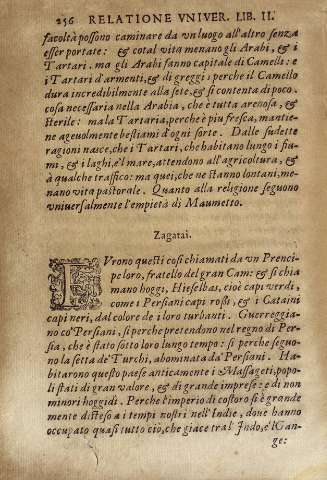 256 RELATIONE VNIVER. LIB. II.
facoltà possono caminare da vn luogo all'altro senza
esser portate: & cotal vita menano gli Arabi, & i
Tartari. ma gli Arabi fanno capitale di Camelli: e
i Tartari d'armenti, & di greggi: perche il Camello
dura incredibilmente alla sete, & si contenta di poco.
cosa necessaria nella Arabia, che è tutta arenosa, &
sterile: ma la Tartaria, perche è piu fresca, mantie-
ne ageuolmente bestiami d'ogni sorte. Dalle sudette
ragioni nasce, che i Tartari, che habitano lungo i fiu-
mi, & i laghi, e'l mare, attendono all'agricoltura, &
à qualche traffico: ma quei, che ne stanno lontani, me-
nano vita pastorale. Quanto alla religione seguono
vniuersalmente l'empietà di Maumetto.
Zagatai.
FVrono questi così chiamati da vn Prenci-
pe loro, fratello del gran Cam: & si chia
mano hoggi, Hieselbas, cioè capi verdi,
come i Persiani capi rossi, & i Cataini
capi neri, dal colore de i loro turbanti. Guerreggia-
no co' Persiani, sì perche pretendono nel regno di Per-
sia, che è stato sotto loro lungo tempo: sì perche seguo-
no la setta de' Turchi, abominata da' Persiani. Ha-
bitarono questo paese anticamente i Massageti, popo-
li stati di gran valore, & di grande imprese: e di non
minori hoggidì. Perche l'imperio di costoro si è grande
mente disteso a i tempi nostri nell'Indie, doue hanno
occupato quasi tutto ciò, che giace tra l'Indo, e'l Gan-
ge: